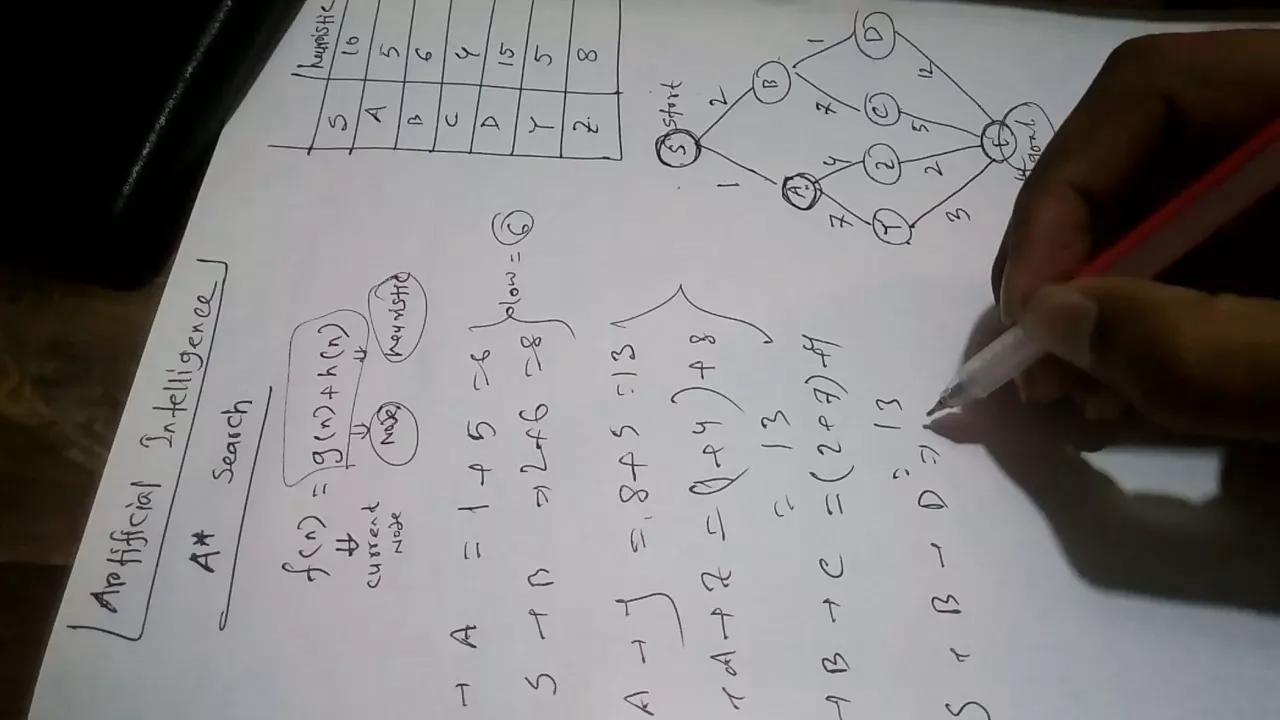 Artifficial Intelligence
A* Search
f(n) = g(n) + h(n)
current Node
Node
heuristic
→ A = 1 + 5 = 6
S → B => 2+6 = 8
low = 6
A → Y = 8+5 = 13
→ A → Z = (1+4) + 8
= 13
→ B → C = (2+7)+4
= 13
S → B → D =
heuristic
S 10
A 5
B 6
C 4
D 15
Y 5
Z 8
start
S
2
1
B
A
1
7
4
7
D
C
Z
Y
12
5
2
3
E
goal